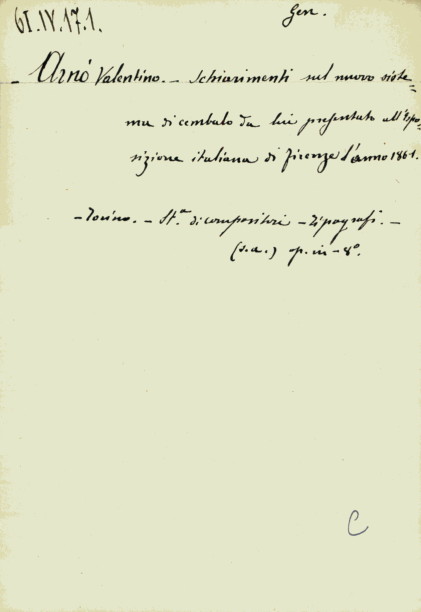 61.IV.17.1.
Gen.
- Arnó Valentino. - Schiarimenti sul nuovo siste=
ma di cembalo da lui presentato all'Espo=
sizione italiana di Firenze l'anno 1861.
- Torino. - St.ª di compositori - Tipografi. -
(s.a.) op. in - 8º.
C